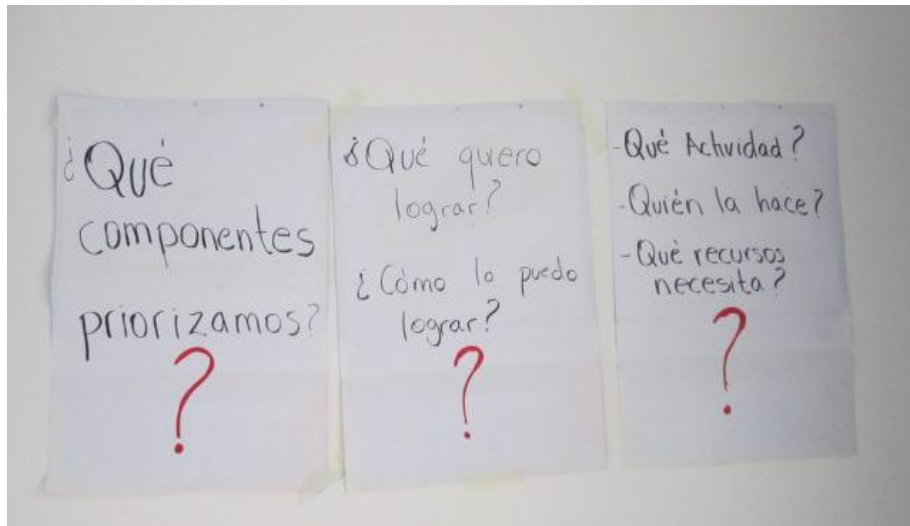 ¿Qué
componentes
priorizamos?
?
¿Qué quero
lograr?
¿Cómo lo puedo
lograr?
?
-Qué Actividad?
-Quién la hace?
-Qué recursos
necesita?
?